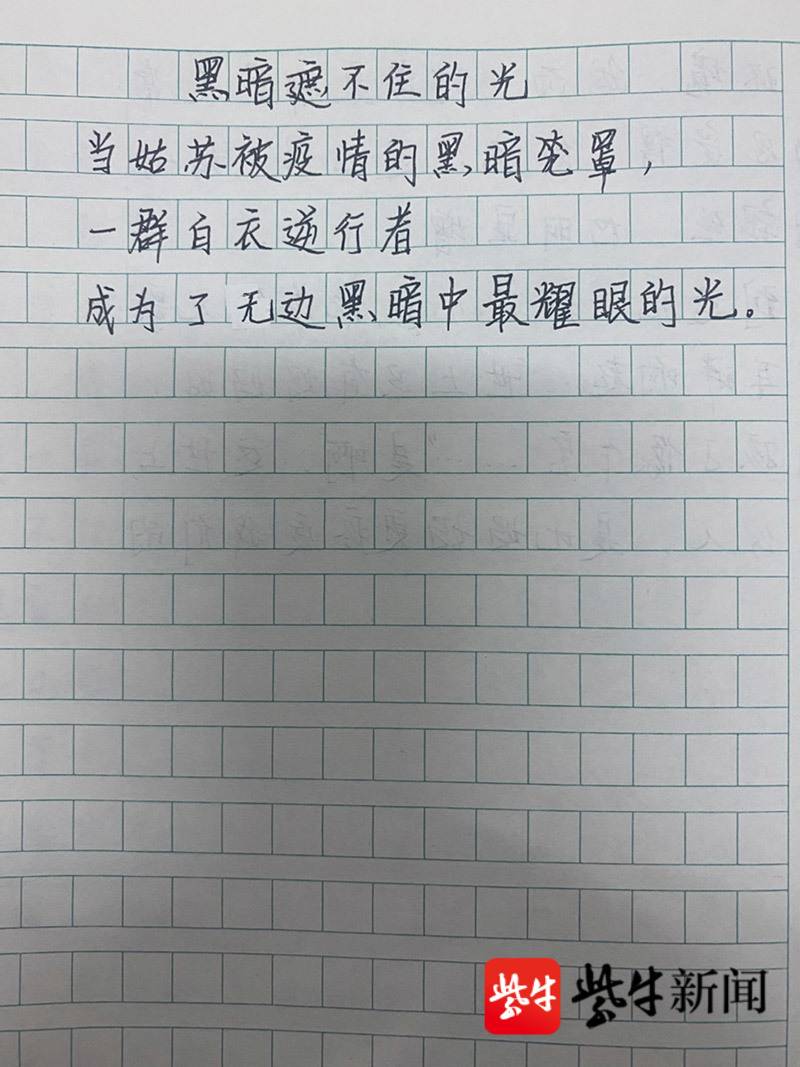 黑暗遮不住的光
当姑苏被疫情的黑暗笼罩，
一群白衣逆行者
成为了无边黑暗中最耀眼的光。
紫牛 紫牛新闻